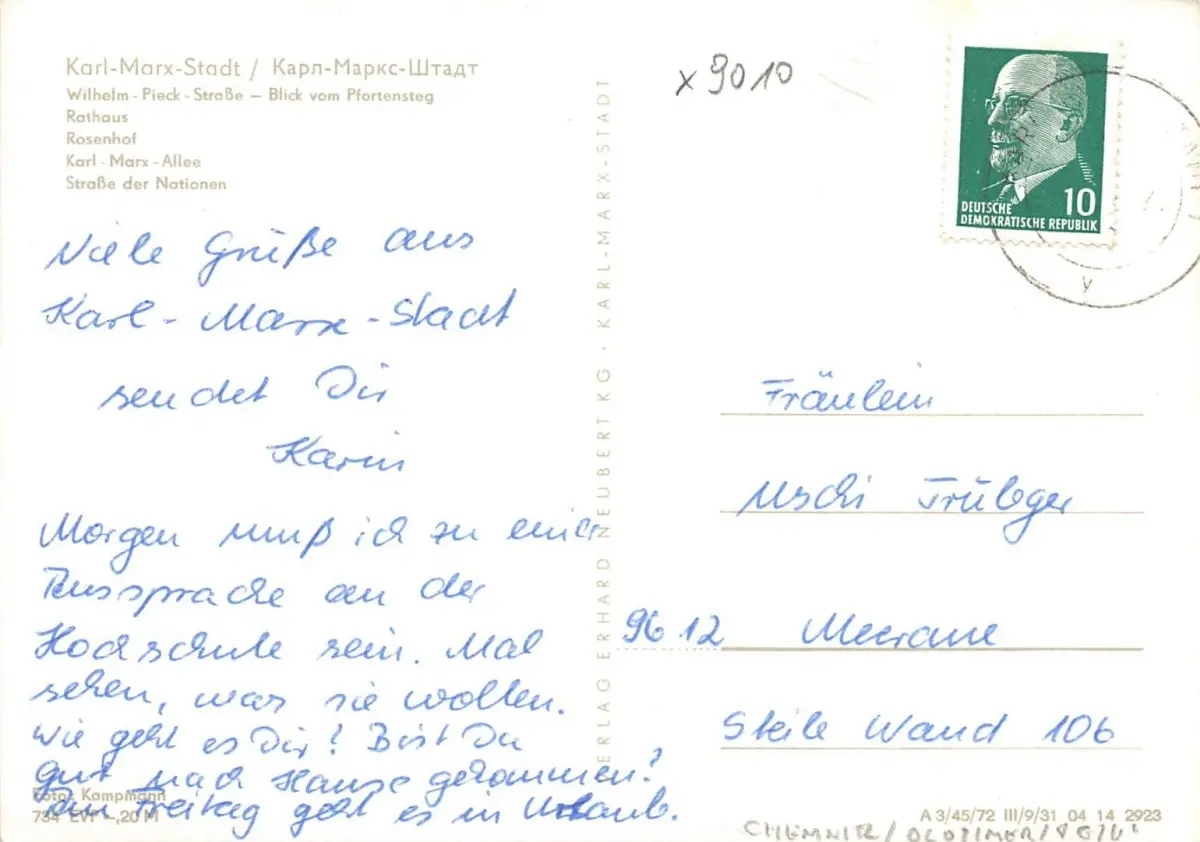 Karl-Marx-Stadt / Карл-Маркс-Штадт
Wilhelm-Pieck-Straße – Blick vom Pfortensteg
Rathaus
Rosenhof
Karl-Marx-Allee
Straße der Nationen
Viele Grüße aus
Karl-Marx-Stadt
sendet Dir
Karin
Morgen muß ich zu einer
Aussprache an der
Hochschule sein. Mal
sehen, was sie wollen.
Wie geht es Dir? Bist Du
gut nach Hause gekommen?
Am Freitag geht es in Urlaub.
Foto: Kampmann
734 EVP –,20 M
VERLAG ERHARD NEUBERT KG · KARL-MARX-STADT
x 9010
10
DEUTSCHE
DEMOKRATISCHE REPUBLIK
y
Fräulein
Uschi Trübger
9612 Meerane
Steile Wand 106
A 3/45/72 III/9/31 04 14 2923
CHEMNITZ/OLDTIMER/